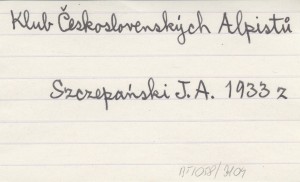 Klub Československých Alpistů
Szczepański J.A. 1933 z